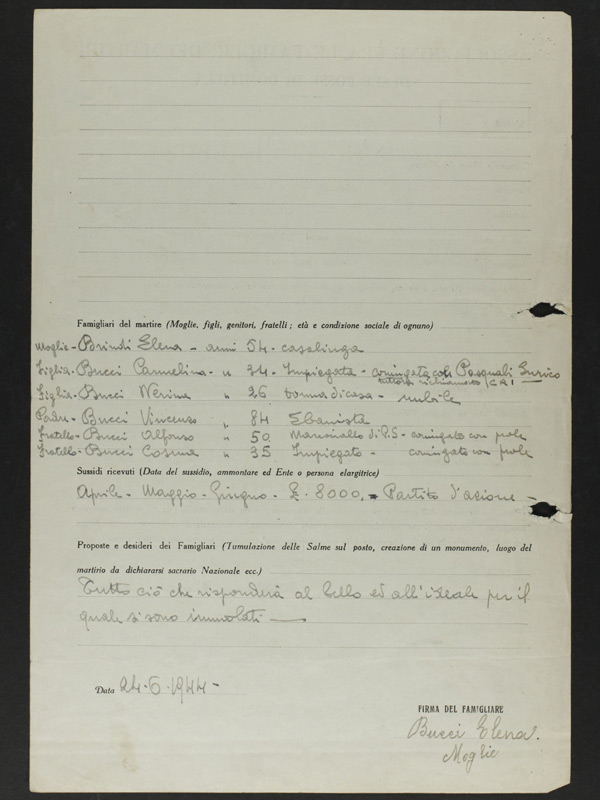 Famigliari del martire (Moglie, figli, genitori, fratelli; età e condizione sociale di ognuno)
Moglie - Brindi Elena - anni 54 - casalinga
Figlia - Bucci Carmelina - " 34 - Impiegata - coniugata col Pasquali Enrico
tuttora richiamato / C R I
Figlia - Bucci Nerina " 26 donna di casa - nubile
Padre - Bucci Vincenzo " 84 Ebanista
Fratello - Bucci Alfonso " 50 Maresciallo di P.S - coniugato con prole
Fratello - Bucci Cosma " 35 Impiegato - coniugato con prole
Sussidi ricevuti (Data del sussidio, ammontare ed Ente o persona elargitrice)
Aprile - Maggio - Giugno - £. 8000. - Partito d'azione -
Proposte e desideri dei Famigliari (Tumulazione delle Salme sul posto, creazione di un monumento, luogo del
martirio da dichiararsi sacrario Nazionale ecc.)
Tutto ciò che risponderà al bello ed all'ideale per il
quale si sono immolati -
Data 24-6-1944 -
FIRMA DEL FAMIGLIARE
Bucci Elena.
Moglie